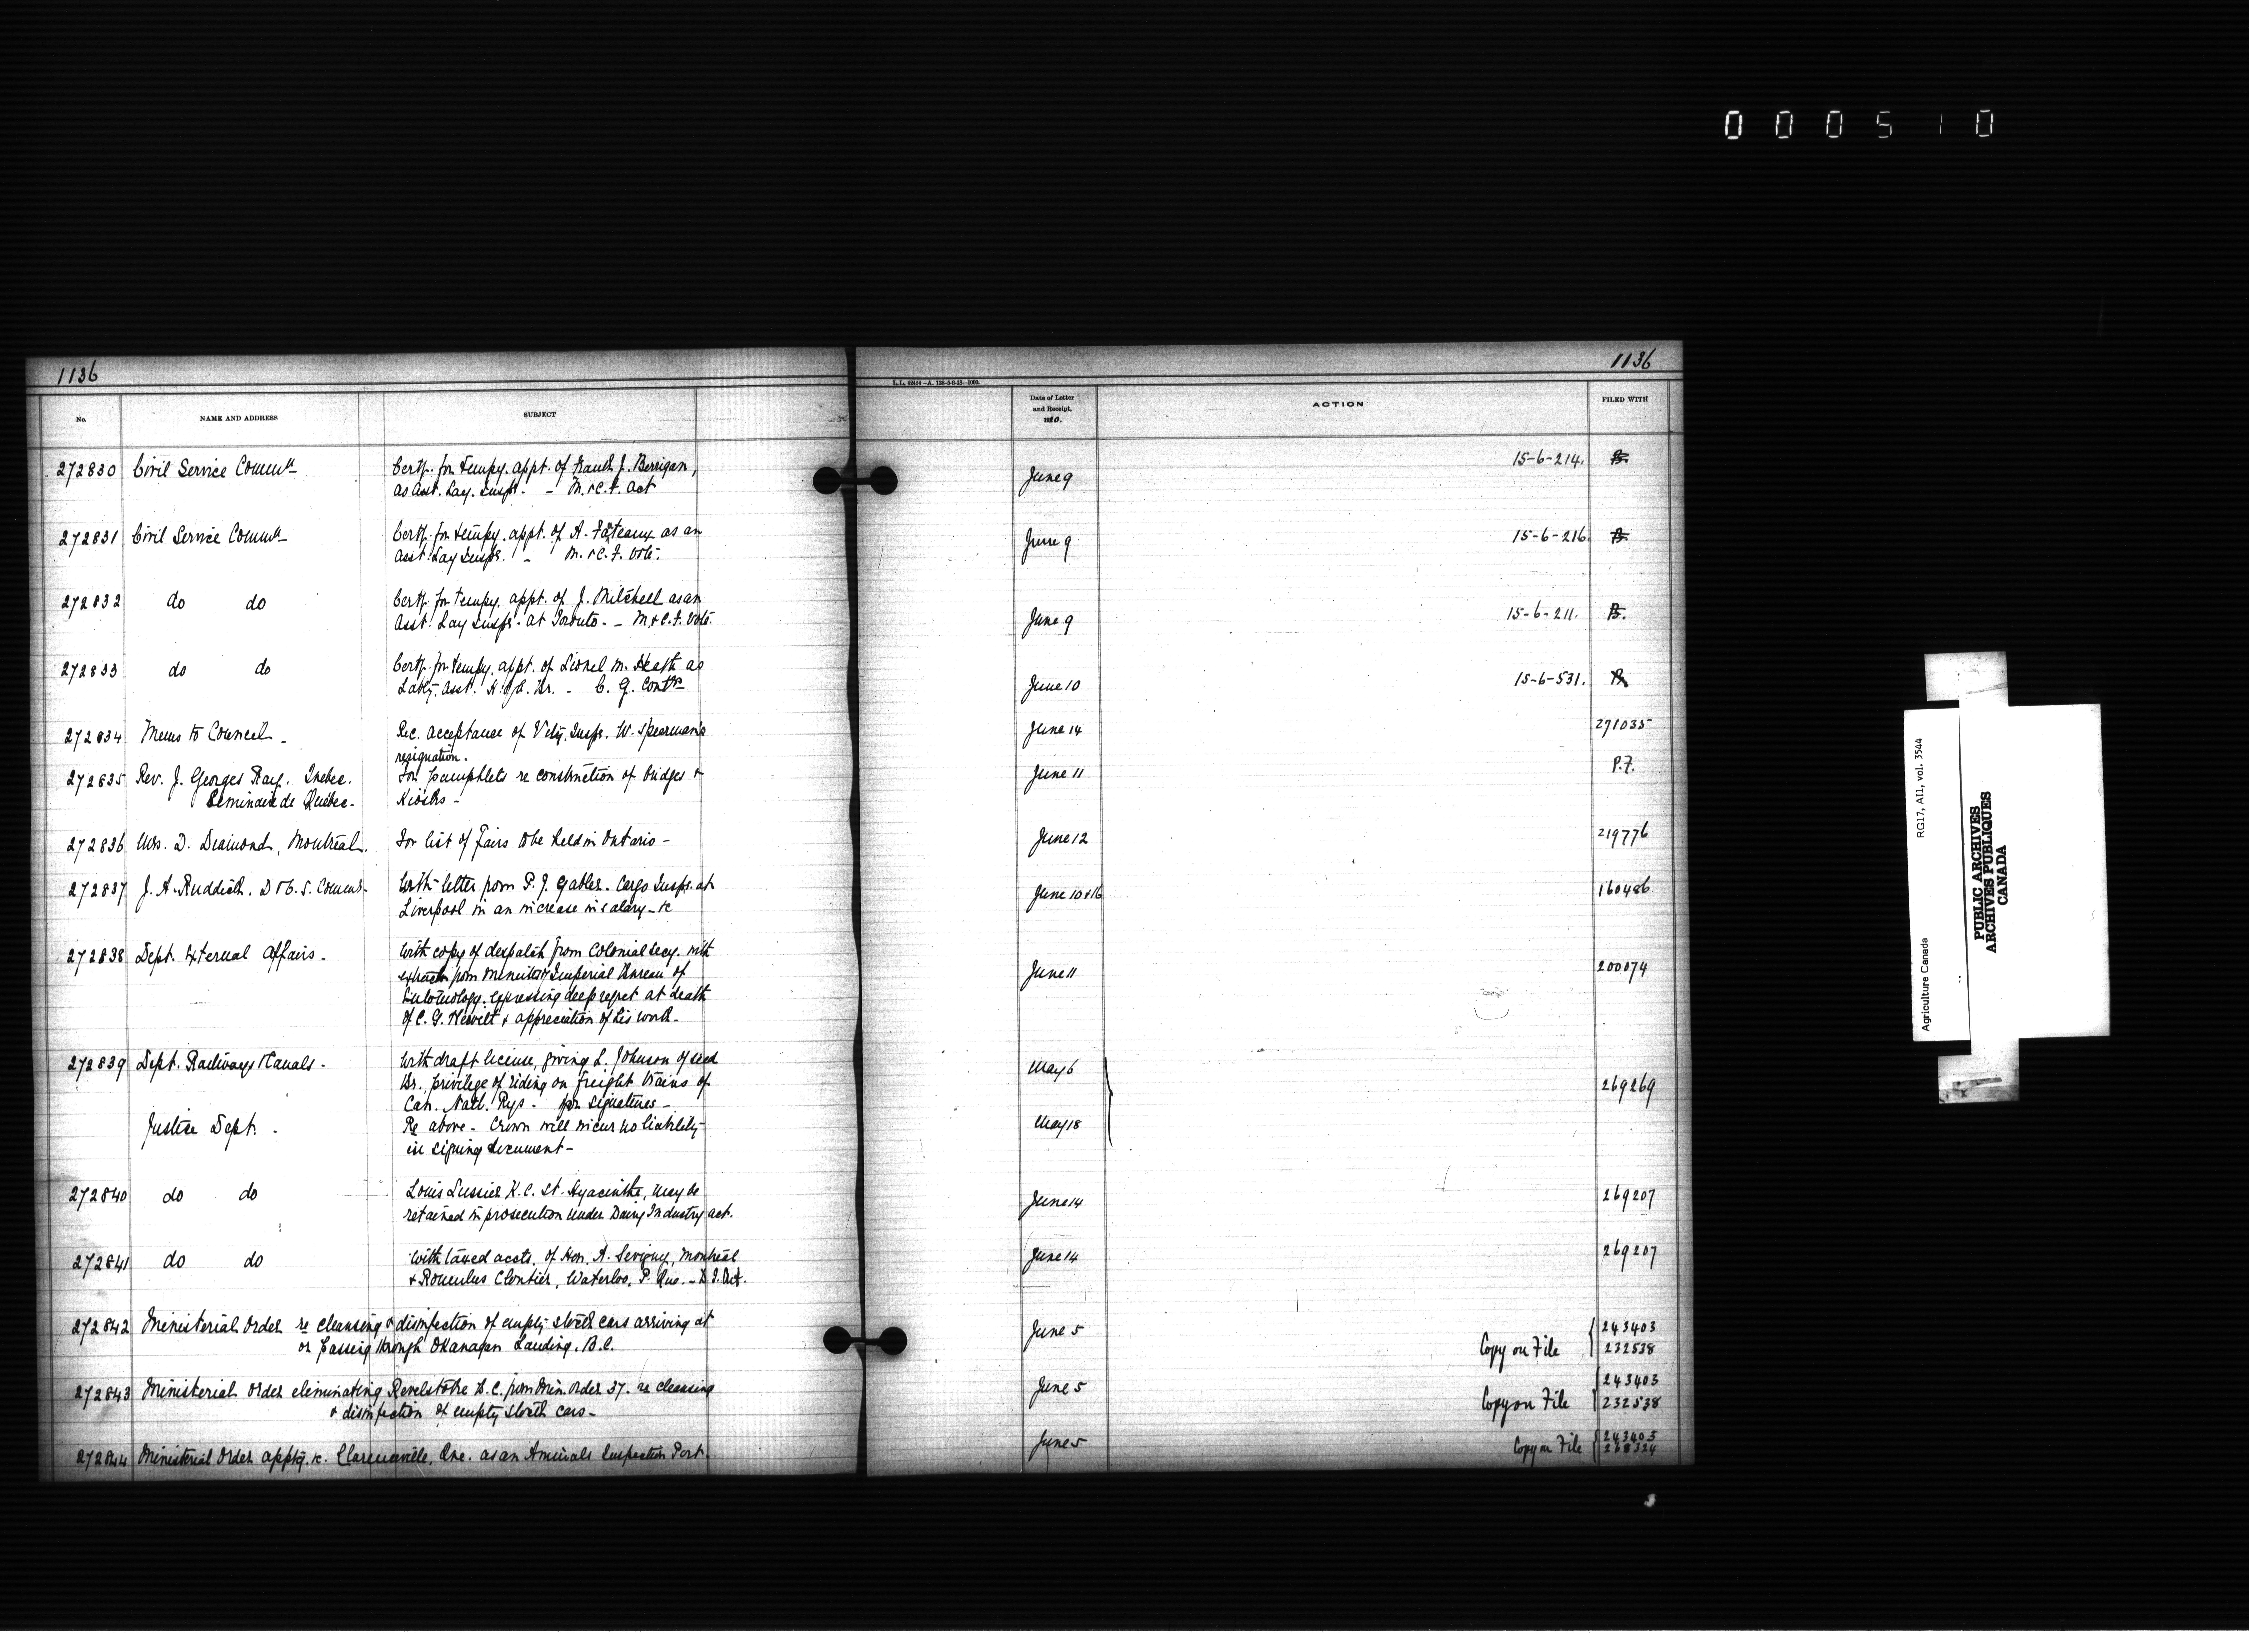 000510
1136
1136
L.L. 62414—A. 128-5-6-18—1000.
No.
NAME AND ADDRESS
SUBJECT
Date of Letter
and Receipt,
1920.
ACTION
FILED WITH
272830 Civil Service Commn Certf. for tempy. appt. of Frank J. Berrigan, 15-6-214. B.
as Asst. Lay. Inspr. - M. & C. F. Act June 9
272831 Civil Service Commn Certf. for tempy. appt. of A. Fateaux as an June 9 15-6-216. B.
Asst. Lay Inspr. - M. & C. F. Vote.
272832 do do Certf. for tempy. appt. of J. Mitchell as an
Asst. Lay Inspr. at Toronto. - M. & C. F. Vote. June 9 15-6-211. B.
272833 do do Certf. for tempy. appt. of Lionel M. Heath as
Laby. Asst. H. of A. Br. - C. G. Contr June 10 15-6-531.
272834 Memo to Council - Rec. acceptance of Vety. Inspr. W. Spearman's June 14 271035
resignation.
272835 Rev. J. Georges Ray. Quebec. For pamphlets re construction of bridges & June 11 P.F.
Seminaire de Quebec. Kiosks -
272836 Mrs. D. Diamond, Montreal. For list of Fairs to be held in Ontario - June 12 219776
272837 J. A. Ruddick. D & C. S. Commr. With letter from P. J. Gabler. Cargo Inspr. at June 10 & 16 160486
Liverpool in an increase in salary - &c
272838 Dept. External Affairs. With copy of despatch from Colonial Secy. with
extract from minutes of Imperial Bureau of June 11 200074
Entomology. expressing deep regret at death
of C. G. Hewitt & appreciation of his work.
272839 Dept. Railways & Canals. With draft license, giving L. Johnson of seed May 6
Br. privilege of riding on freight trains of 269269
Can. Natl. Rys - for signatures -
Justice Dept. - Re above - Crown will incur no liability May 18
in signing document -
272840 do do Louis Lussier K.C. St. Hyacinthe, may be June 14 269207
retained in prosecution under Dairy Industry act.
272841 do do With taxed accts. of Hon. A. Sevigny, Montreal June 14 269207
& Romulus Cloutier, Waterloo, P. Que. - D. I. Act.
272842 Ministerial Order re cleansing & disinfection of empty stock cars arriving at June 5 243403
or passing through Okanagan Landing. B.C. Copy on File 232538
272843 Ministerial Order eliminating Revelstoke B.C. from Min. Order 37. re cleansing June 5 243403
& disinfection of empty stock cars - Copy on File 232538
272844 Ministerial Order apptg. &c. Clarenceville, Que. as an Animals Inspection Port. June 5 Copy on File 243403
268324
Agriculture Canada RG17, AI1, vol. 3544
PUBLIC ARCHIVES
ARCHIVES PUBLIQUES
CANADA